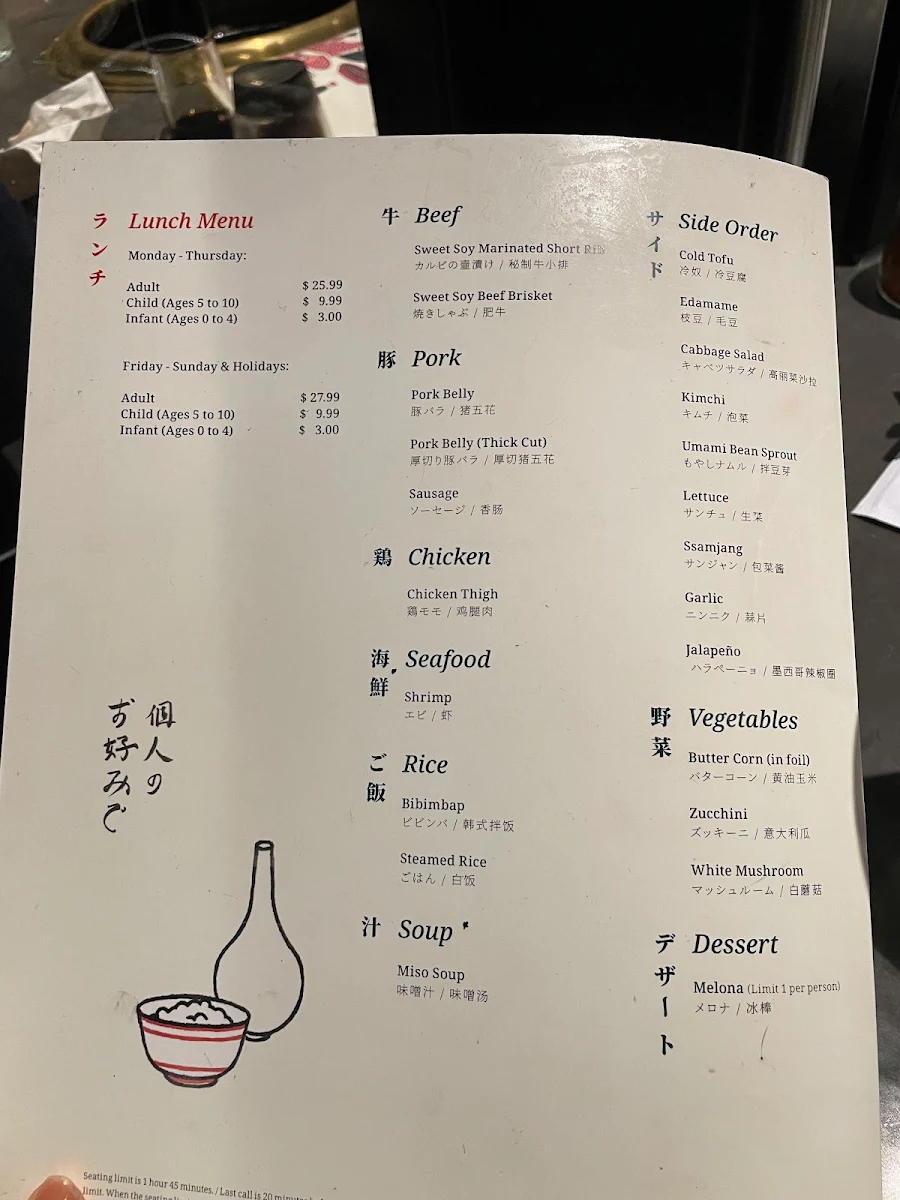 ランチ
Lunch Menu
Monday - Thursday:
Adult $ 25.99
Child (Ages 5 to 10) $ 9.99
Infant (Ages 0 to 4) $ 3.00
Friday - Sunday & Holidays:
Adult $ 27.99
Child (Ages 5 to 10) $ 9.99
Infant (Ages 0 to 4) $ 3.00
個人の
お好みで
牛 Beef
Sweet Soy Marinated Short Rib
カルビの壷漬け / 秘制牛小排
Sweet Soy Beef Brisket
焼きしゃぶ / 肥牛
豚 Pork
Pork Belly
豚バラ / 猪五花
Pork Belly (Thick Cut)
厚切り豚バラ / 厚切猪五花
Sausage
ソーセージ / 香肠
鶏 Chicken
Chicken Thigh
鶏モモ / 鸡腿肉
海鮮 Seafood
Shrimp
エビ / 虾
ご飯 Rice
Bibimbap
ビビンバ / 韩式拌饭
Steamed Rice
ごはん / 白饭
汁 Soup
Miso Soup
味噌汁 / 味噌汤
サイド
Side Order
Cold Tofu
冷奴 / 冷豆腐
Edamame
枝豆 / 毛豆
Cabbage Salad
キャベツサラダ / 高丽菜沙拉
Kimchi
キムチ / 泡菜
Umami Bean Sprout
もやしナムル / 拌豆芽
Lettuce
サンチュ / 生菜
Ssamjang
サンジャン / 包菜酱
Garlic
ニンニク / 蒜片
Jalapeño
ハラペーニョ / 墨西哥辣椒圈
野菜 Vegetables
Butter Corn (in foil)
バターコーン / 黄油玉米
Zucchini
ズッキーニ / 意大利瓜
White Mushroom
マッシュルーム / 白蘑菇
デザート
Dessert
Melona (Limit 1 per person)
メロナ / 冰棒
Seating limit is 1 hour 45 minutes. / Last call is 20 minutes
limit. When the seating